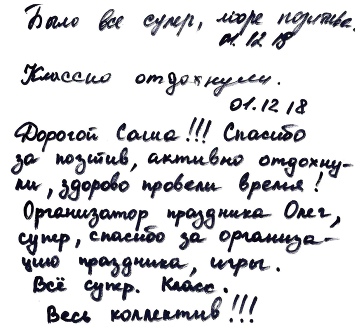 Было все супер, море позитива.
01.12.18
Классно отдохнули.
01.12.18
Дорогой Саша!!! Спасибо
за позитив, активно отдохну-
ли, здорово провели время!
Организатор праздника Олег,
супер, спасибо за организа-
цию праздника, игры.
Всё супер. Класс.
Весь коллектив!!!